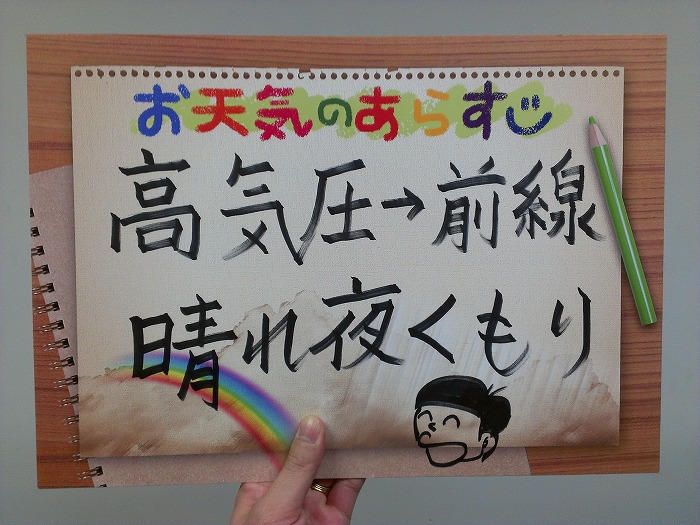 お天気のあらすじ
高気圧→前線
晴れ夜くもり